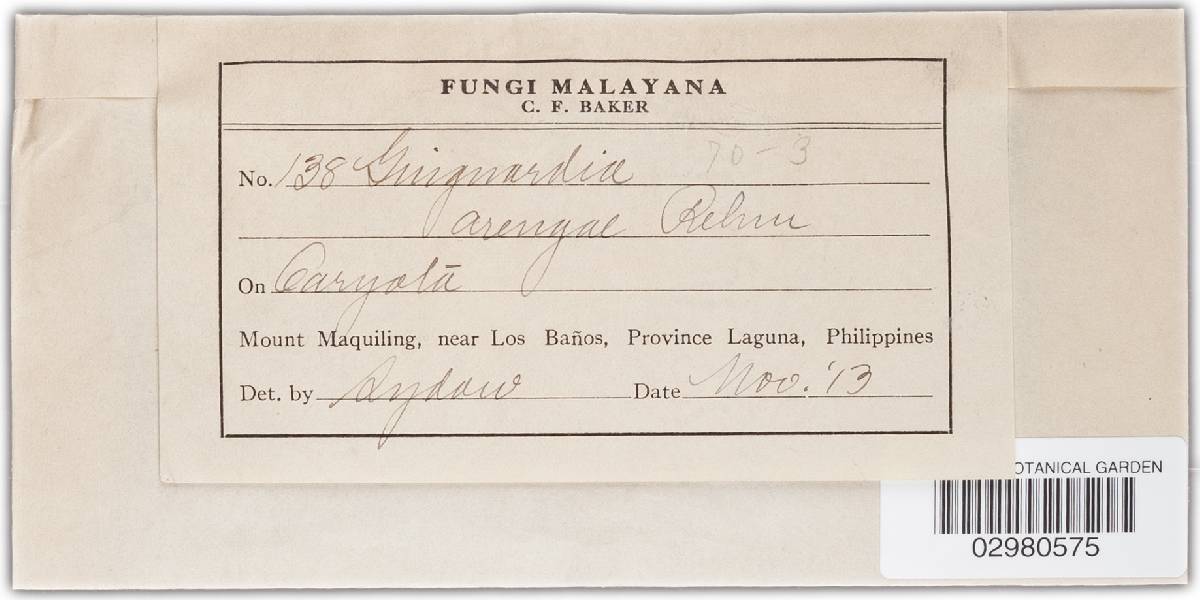 FUNGI MALAYANA
C. F. BAKER
No. 138 Guignardia 70-3
arengae Rehm
On Caryota
Mount Maquiling, near Los Baños, Province Laguna, Philippines
Det. by Sydow Date Nov. '13
OTANICAL GARDEN
02980575